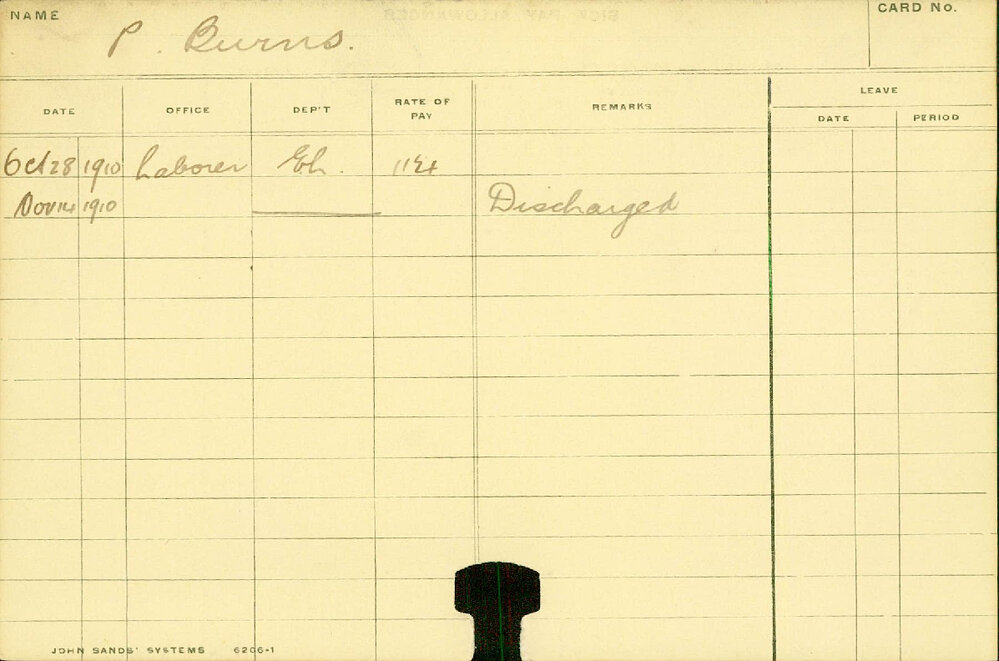 NAME P. Burns. CARD No.
DATE OFFICE DEP'T RATE OF PAY REMARKS LEAVE
DATE PERIOD
Oct 28 1910 Laborer
Nov 14 1910 Discharged
JOHN SANDS' SYSTEMS 6206-1